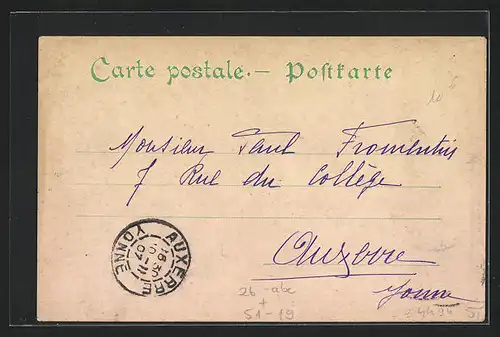 Carte postale. — Postkarte
10
Monsieur Paul Fromentin
7 Rue du Collège
Auxerre
Yonne
AUXERRE
YONNE
26 - abc
+
51-19